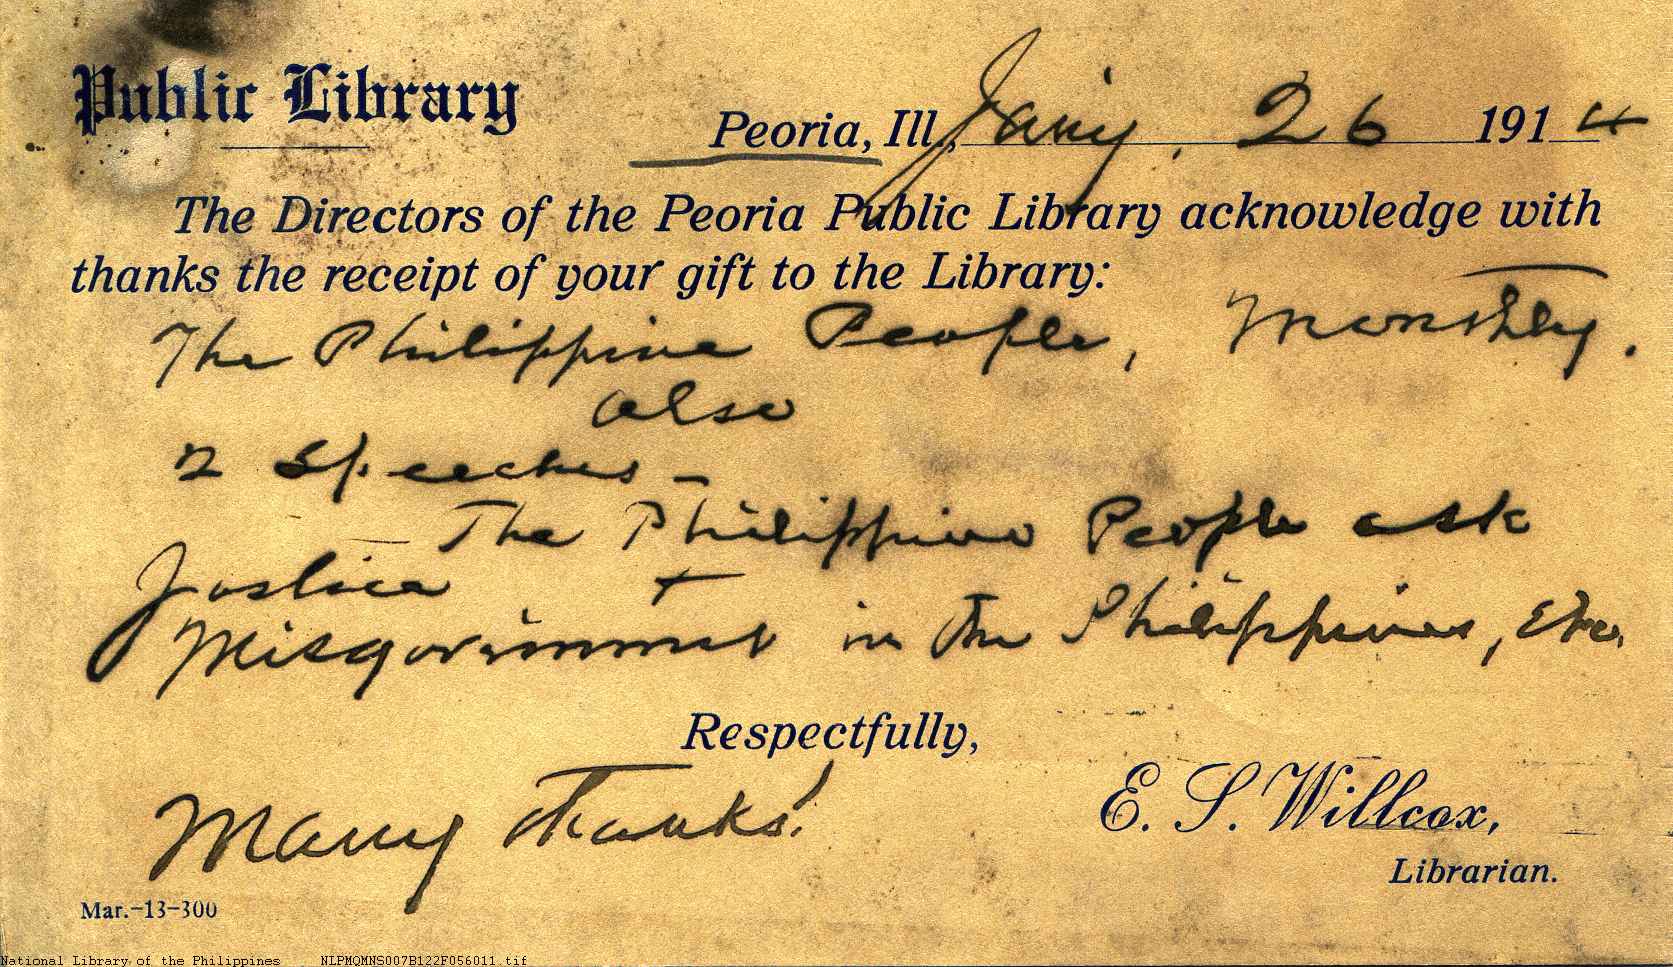 Public Library
Peoria, Ill., Jany. 26 1914
The Directors of the Peoria Public Library acknowledge with
thanks the receipt of your gift to the Library:
The Philippine People, Monthly.
also
2 Speeches —
The Philippine People ask
Justice +
Misgovernment in the Philippines, Etc.
Respectfully,
Many thanks!
E. S. Willcox,
Librarian.
Mar.-13-300
National Library of the Philippines NLPMQMNS007B122F056011.tif